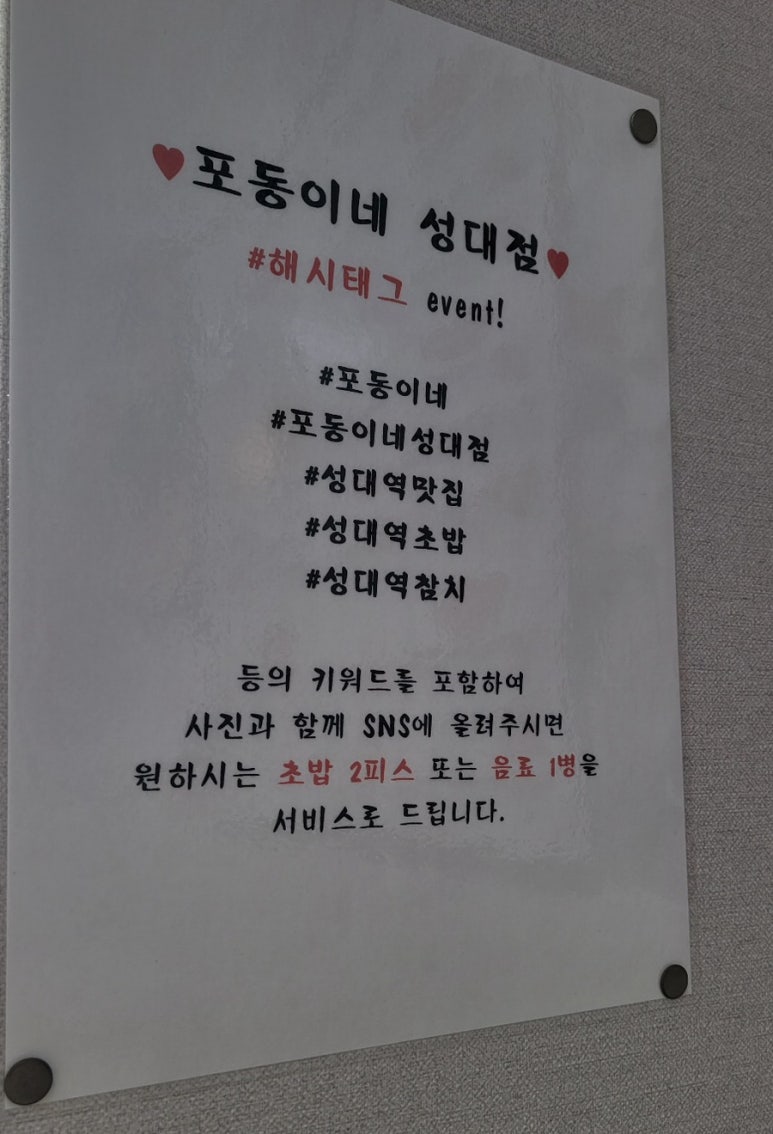 ♥포동이네 성대점♥
#해시태그 event!
#포동이네
#포동이네성대점
#성대역맛집
#성대역초밥
#성대역참치
등의 키워드를 포함하여
사진과 함께 SNS에 올려주시면
원하시는 초밥 2피스 또는 음료 1병을
서비스로 드립니다.